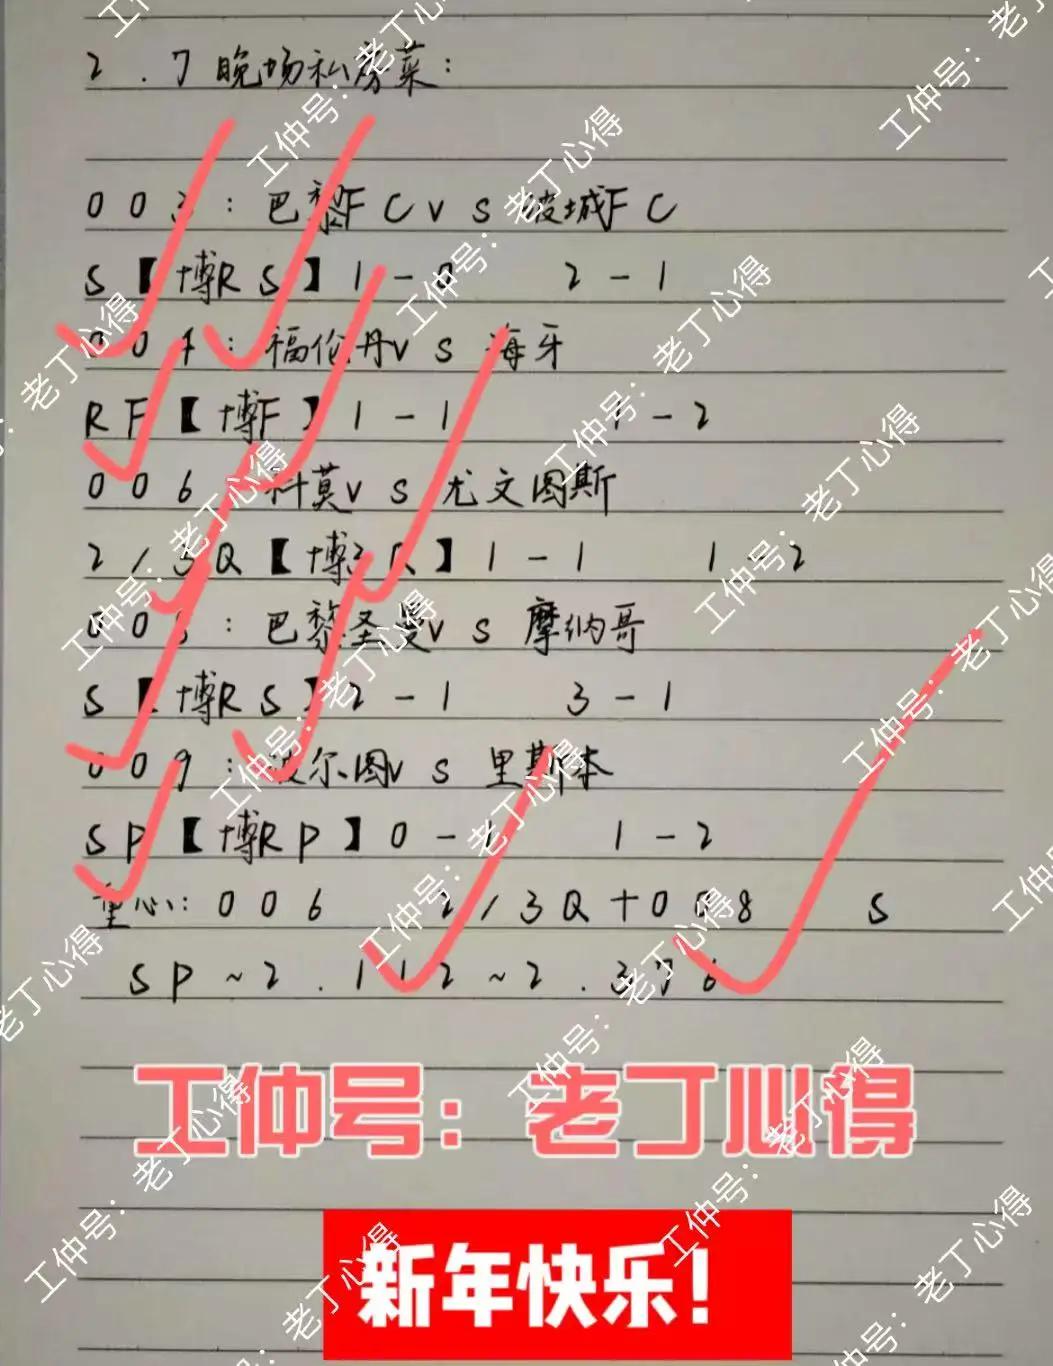 2.7晚场私房菜:
003:巴黎FCvs 城FC
S【博RS】1-0 2-1
004:福伦丹vs海牙
RF【博F】1-1 1-2
006 科莫vs尤文图斯
2/3Q【博2Q】1-1 1-2
008:巴黎圣曼vs摩纳哥
S【博RS】2-1 3-1
009:波尔图vs里斯本
SP【博RP】0-1 1-2
重心:006 2/3Q+008 S
SP~2.112~2.376
工仲号:老丁心得
新年快乐!